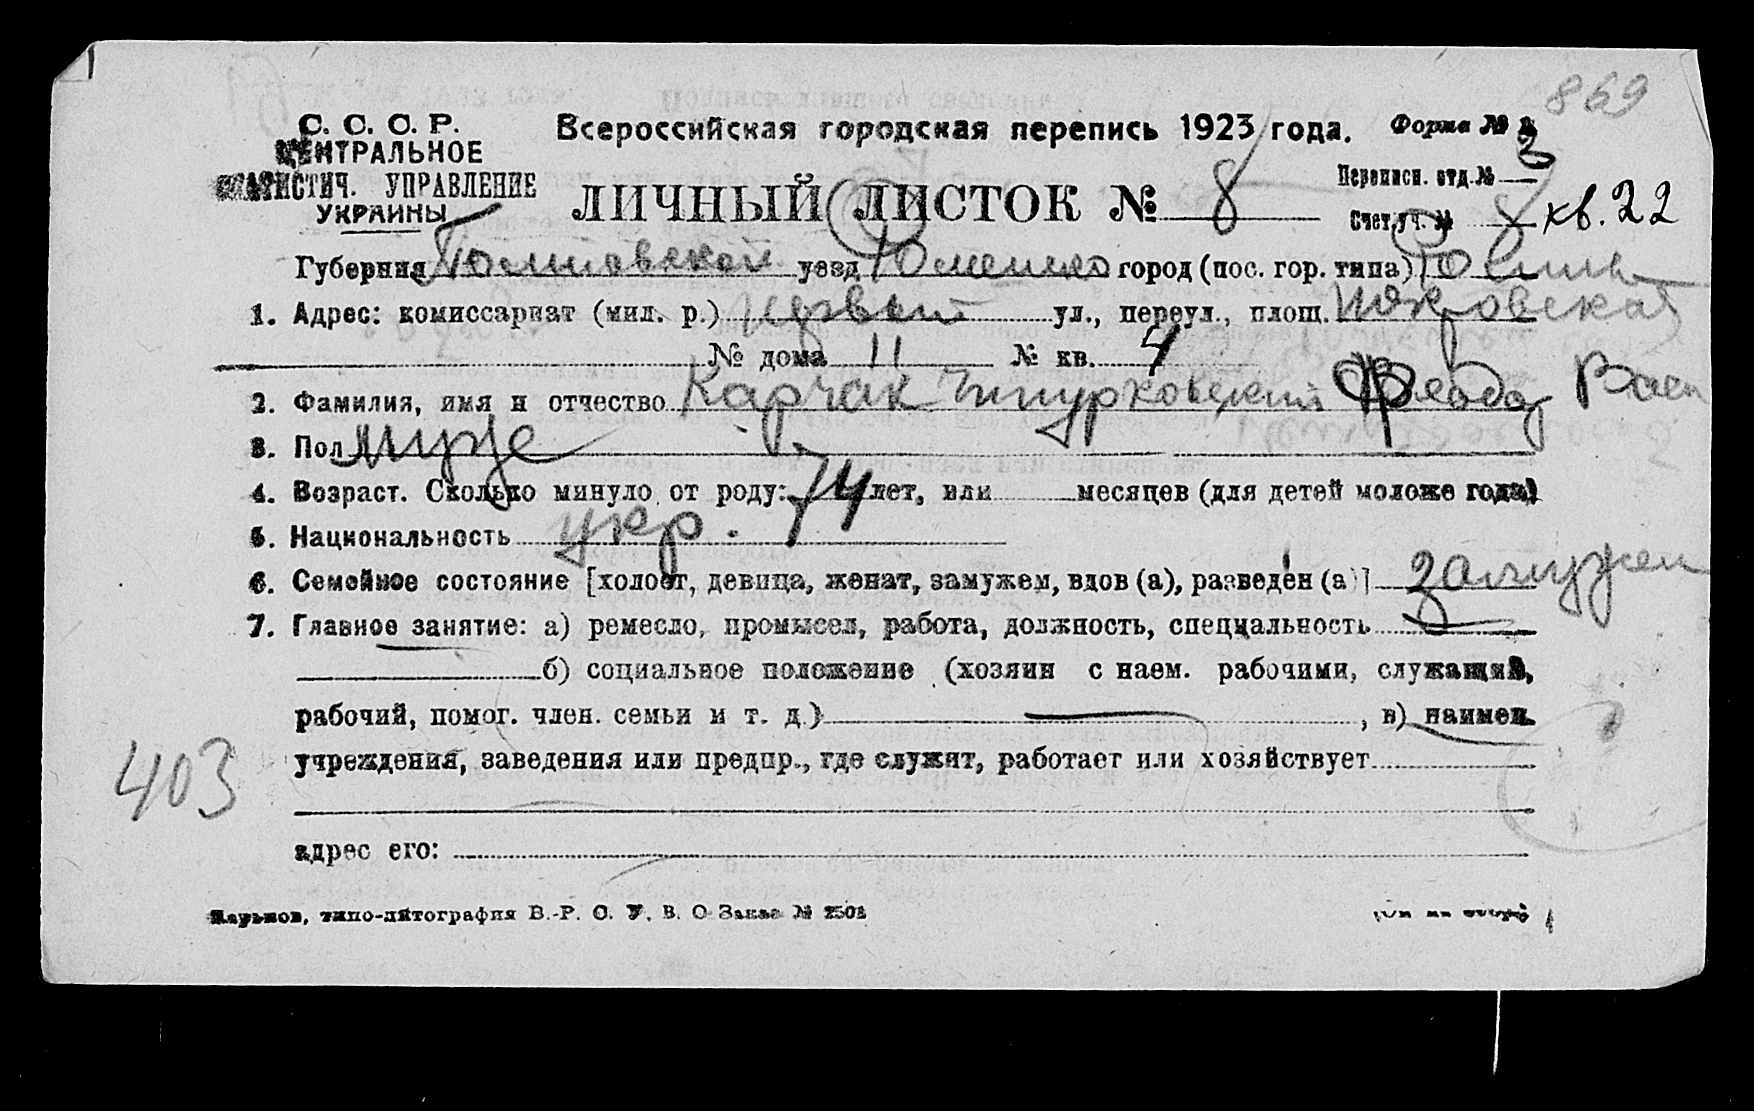 869
С. С. С. Р.
ЦЕНТРАЛЬНОЕ
СТАТИСТИЧ. УПРАВЛЕНИЕ
УКРАИНЫ
Всероссийская городская перепись 1923 года. Форма № 2
ЛИЧНЫЙ ЛИСТОК № 8
Переписн. отд. № 3
Счет. уч. № 8 кв. 22
Губерния Полтавской уезд город (пос. гор. типа)
1. Адрес: комиссариат (мил. р.) первый ул., переул., площ.
№ дома 11 № кв. 4
2. Фамилия, имя и отчество Карчак Чепурковский Вас
3. Пол муж
4. Возраст. Сколько минуло от роду: 74 лет, или месяцев (для детей моложе года)
5. Национальность укр.
6. Семейное состояние [холост, девица, женат, замужем, вдов (а), разведен (а)] замужем
7. Главное занятие: а) ремесло, промысел, работа, должность, специальность
б) социальное положение (хозяин с наем. рабочими, служащий,
рабочий, помог. член. семьи и т. д.) , в) наимен.
403
учреждения, заведения или предпр., где служит, работает или хозяйствует
адрес его:
Харьков, типо-литография В.-Р. О. У. В. О Заказ №